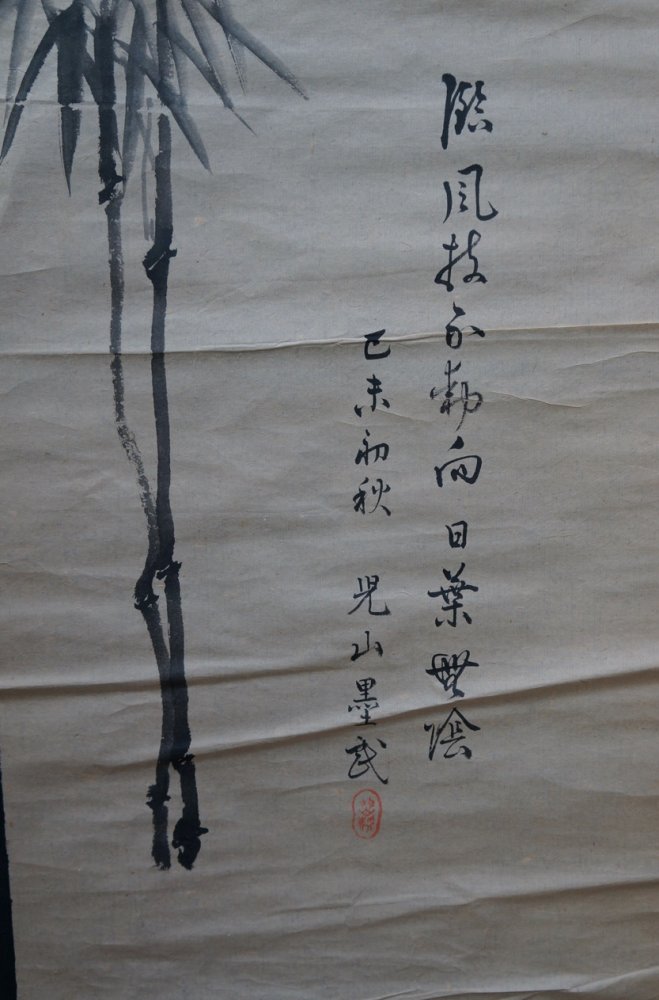 臨風枝向日葉無陰
己未初秋 児山墨